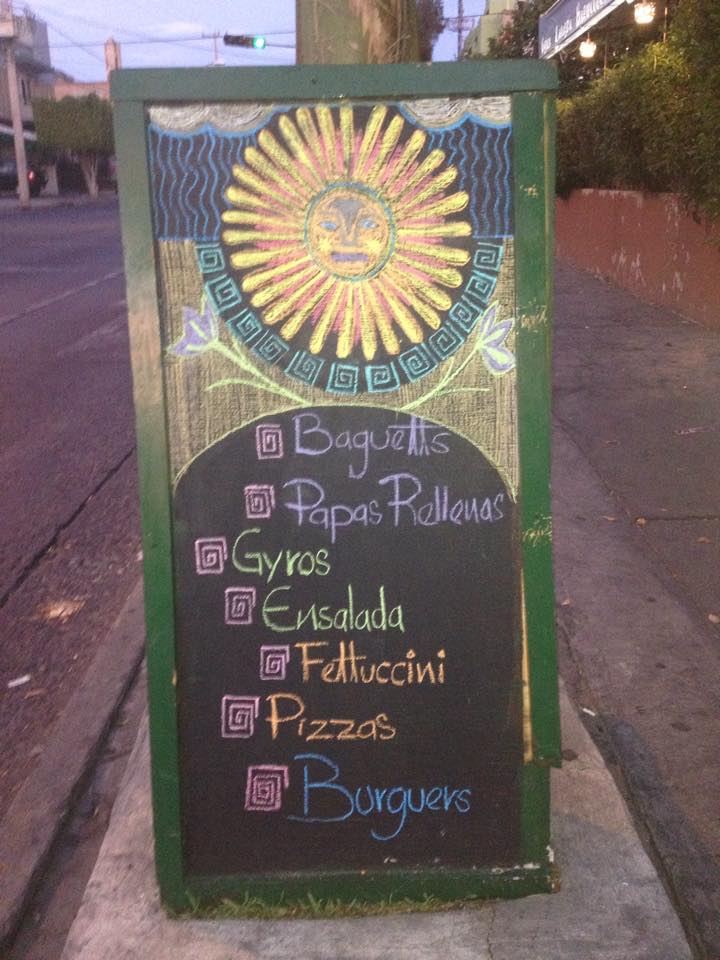 Baguetts
Papas Rellenas
Gyros
Ensalada
Fettuccini
Pizzas
Burguers